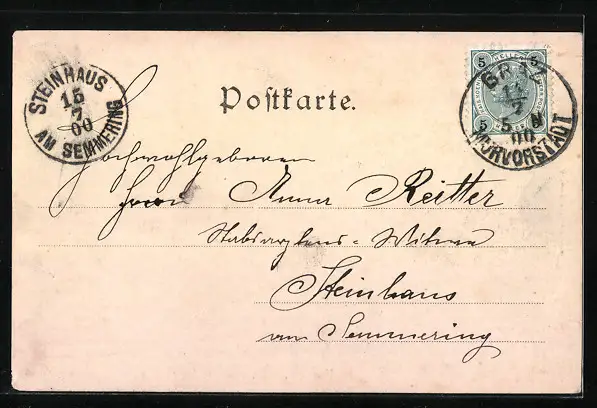 STEINHAUS
15
7
00
AM SEMMERING
Postkarte.
5 HELLER 5
5 5
GRAZ
14
7
5 N
00
MURVORSTADT
Hochwohlgeboren
Frau Anna Reitter
Stabsarztens-Witwe
Steinhaus
am Semmering